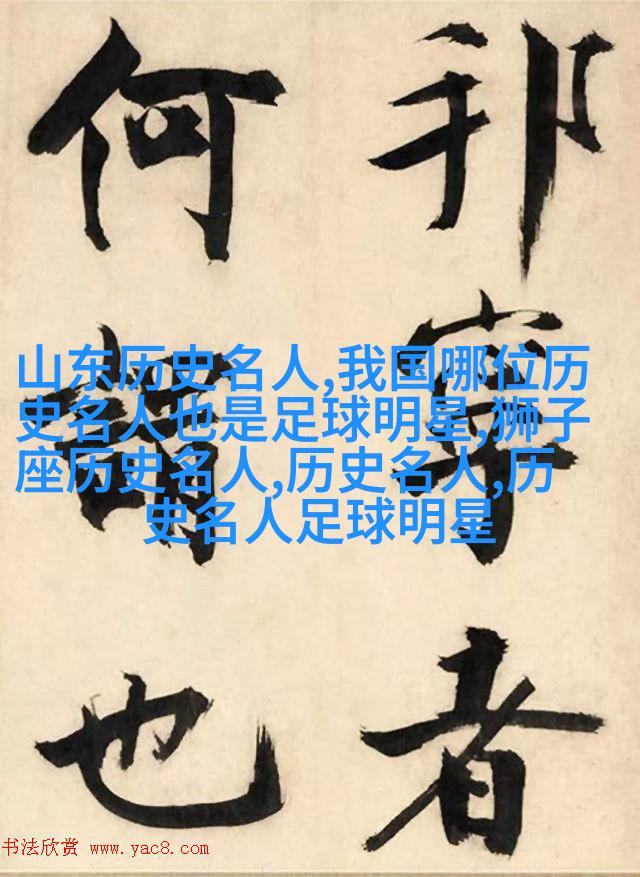 邦寧者
何謂也
山东历史名人,我国哪位历
史名人也是足球明星,狮子
座历史名人,历史名人,历
史名人足球明星
书法欣赏 www.yac8.com